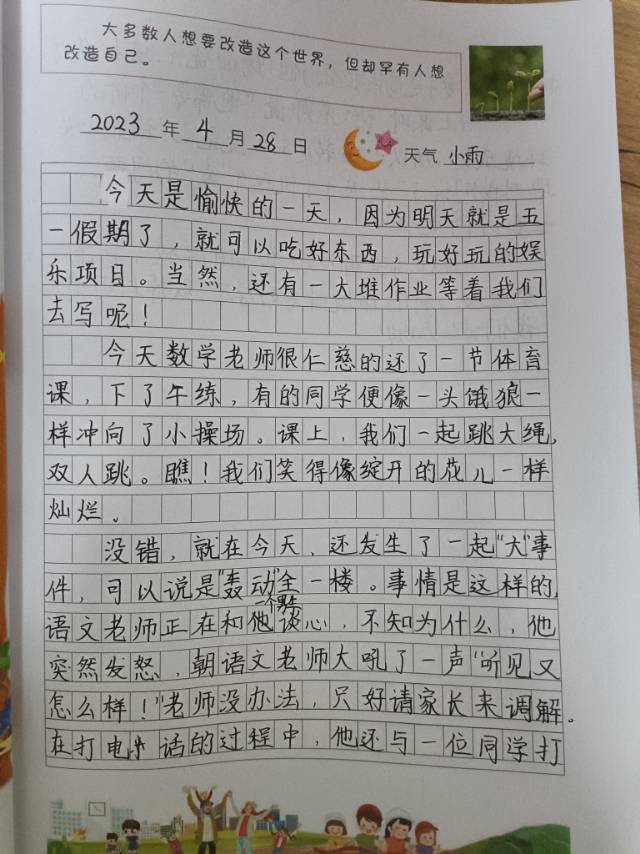 大多数人想要改造这个世界，但却罕有人想
改造自己。
2023 年 4 月 28 日 天气 小雨
今天是愉快的一天，因为明天就是五
一假期了，就可以吃好东西，玩好玩的娱
乐项目。当然，还有一大堆作业等着我们
去写呢！
今天数学老师很仁慈的还了一节体育
课，下了午练，有的同学便像一头饿狼一
样冲向了小操场。课上，我们一起跳大绳，
双人跳。瞧！我们笑得像绽开的花儿一样
灿烂。
没错，就在今天，还发生了一起"大"事
件，可以说是"轰动"全一楼。事情是这样的，
一个男生
语文老师正在和他谈心，不知为什么，他
突然发怒，朝语文老师大吼了一声"听见又
怎么样！"老师没办法，只好请家长来调解。
在打电话的过程中，他还与一位同学打